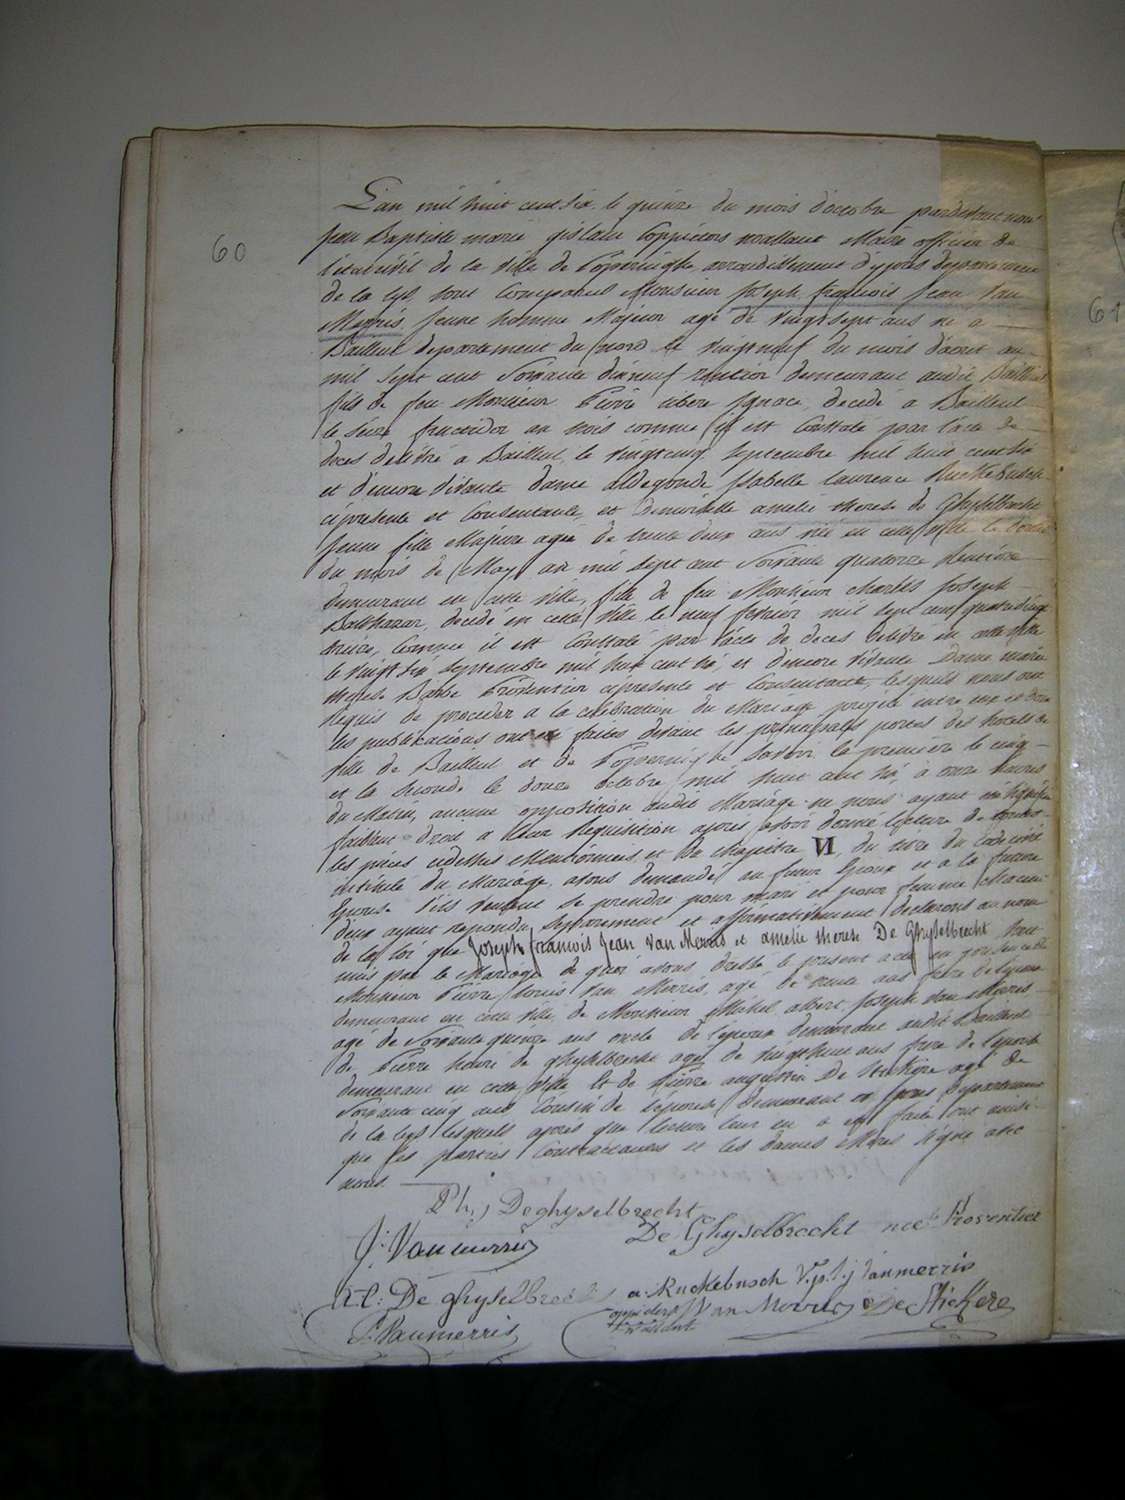 60
L'an mil huit cent six, le quinze du mois d'octobre pardevant nous
Jean Baptiste marie gislain Coppieters wallant Maire officier de
l'état civil de la ville de Poperinghe arrondissement d'ypres departement
de la Lys, sont Comparus Monsieur Joseph francois Jean Van
Merris Jeune homme Majeur agé de vingt sept ans né a
Bailleul departement du nord le vingt neuf du mois d'aout an
mil sept cent Soixante dix neuf rentier demeurant audit Bailleul
fils de feu Monsieur Pierre Ignace, decedé a Bailleul
le seize fructidor an trois comme il est Constaté par l'acte de
deces delivré a Bailleul le vingt cinq Septembre mil huit cent six
et d'encore vivante dame aldegonde Isabelle Laurence Ruckebusch
ci presente et Consentante et Demoiselle amelie therese de Ghyselbrecht
Jeune fille Majeure agée de trente deux ans née en cette ville le douze
du mois de May an mil sept cent Soixante quatorze Rentière
demeurant en cette ville, fille de feu Monsieur Charles Joseph
Balthazar, decedé en cette ville le neuf fevrier mil sept cent quatre vingt
treize, Comme il est Constaté par l'acte de deces delivré en cette ville
le vingt six Septembre mil huit cent six, et d'encore vivante Dame marie
therese Barbe Proventier ci presente et Consentante, lesquels nous ont
Requis de proceder a la celebration du Mariage projeté entre eux et dont
les publications ont été faites devant les principales portes des hotels de
ville de Bailleul et de Poperinghe Savoir la premiere le cinq
et la seconde le douze octobre mil huit cent six, à onze heures
du Matin, aucune opposition audit Mariage ne nous ayant été signifiée
faisant droit a leur Requisition apres avoir donné lecture de toutes
les pieces cidessus Mentionnées, et du Chapitre VI, du titre du Code civil
intitulé du Mariage, avons demandé au futur Epoux et a la future
Epouse s'ils veulent se prendre pour mari et pour femme, Chacun
d'eux ayant repondu Separement et affirmativement declarons au nom
de la loi que Joseph francois Jean Van Merris et amelie therese De Ghyselbrecht, Sont
unis par le Mariage de quoi avons dressé le present acte en presence de
Monsieur Pierre Louis Van Merris, agé de trente ans frere de l'epoux
demeurant en cette ville, de Monsieur Michel albert Joseph Van Merris
agé de Soixante quinze ans oncle de l'epoux demeurant audit Bailleul
de Pierre henri de ghyselbrecht agé de vingt ans frere de l'epouse
demeurant en cette ville et de Pierre augustin De Stickere agé de
Soixante cinq ans Cousin de l'epouse demeurant a ypres departement
de la Lys lesquels après que lecture leur en a été faite ont ainsi
que les parties Contractantes et les dames Meres Signé avec
nous.
Ph: J Deghyselbrecht
De Ghyselbrecht neé Proventier
J: Vanmerris
A: T: De ghyselbrecht a Ruckebusch V. p. l. j Vanmerris
P: Vanmerris M Van Merris De Stickere